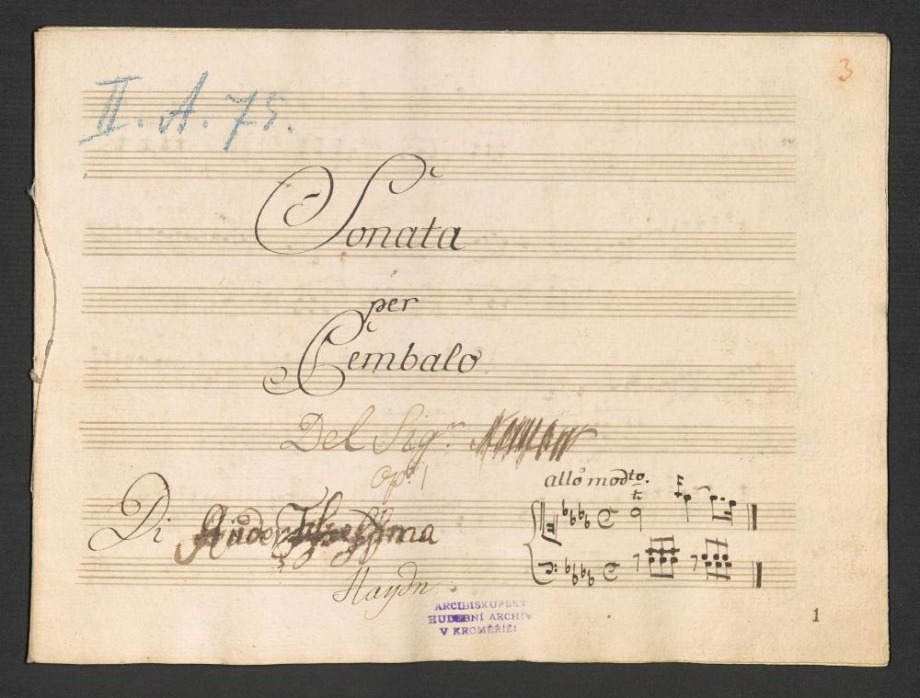 II. A. 75.
3
Sonata
per
Cembalo
Del Sigr
Op: 1
allo modto.
Di
Haydn
ARCIBISKUPSKÝ
HUDEBNÍ ARCHIV
V KROMĚŘÍŽI
1